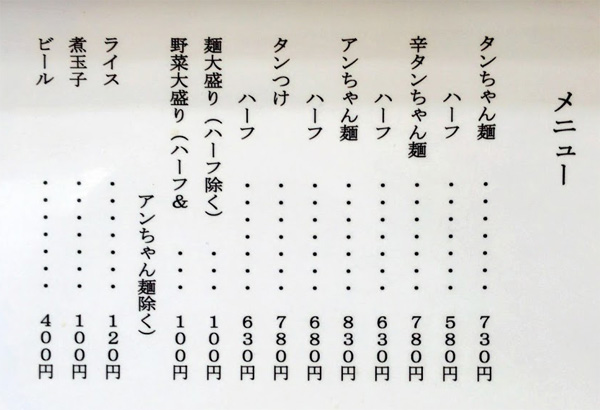 メニュー
タンちゃん麺・・・・・・・730円
ハーフ・・・・・・・580円
辛タンちゃん麺・・・・・・・780円
ハーフ・・・・・・・630円
アンちゃん麺・・・・・・・830円
ハーフ・・・・・・・680円
タンつけ・・・・・・・780円
ハーフ・・・・・・・630円
麺大盛り(ハーフ除く)・・・100円
野菜大盛り(ハーフ&・・・100円
アンちゃん麺除く)
ライス・・・・・・・120円
煮玉子・・・・・・・100円
ビール・・・・・・・400円